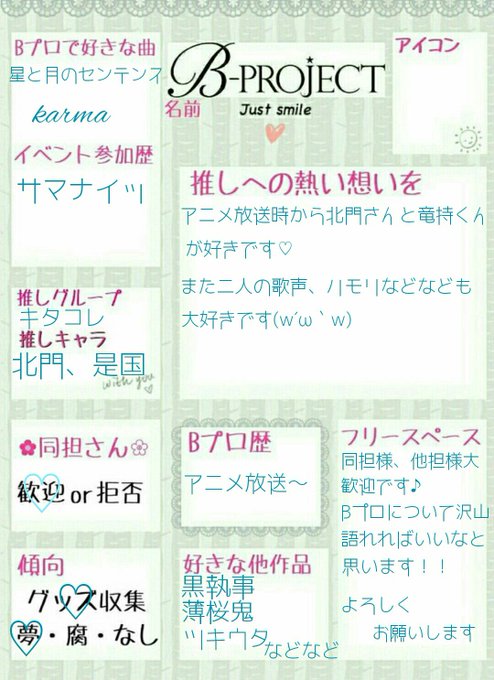 Bプロで好きな曲
星と月のセンテンス
karma
イベント参加歴
サマナイッ
推しグループ
キタコレ
推しキャラ
北門、是国
with you
✿同担さん❀
歓迎 or 拒否
傾向
グッズ収集
夢・腐・なし
B-PROJECT
名前
Just smile
アイコン
推しへの熱い想いを
アニメ放送時から北門さんと竜持くん
が好きです♡
また二人の歌声、ハモリなどなども
大好きです(w´ω｀w)
Bプロ歴
アニメ放送～
好きな他作品
黒執事
薄桜鬼
ツキウタ
などなど
フリースペース
同担様、他担様大
歓迎です♪
Bプロについて沢山
語れればいいなと
思います！！
よろしく
お願いします